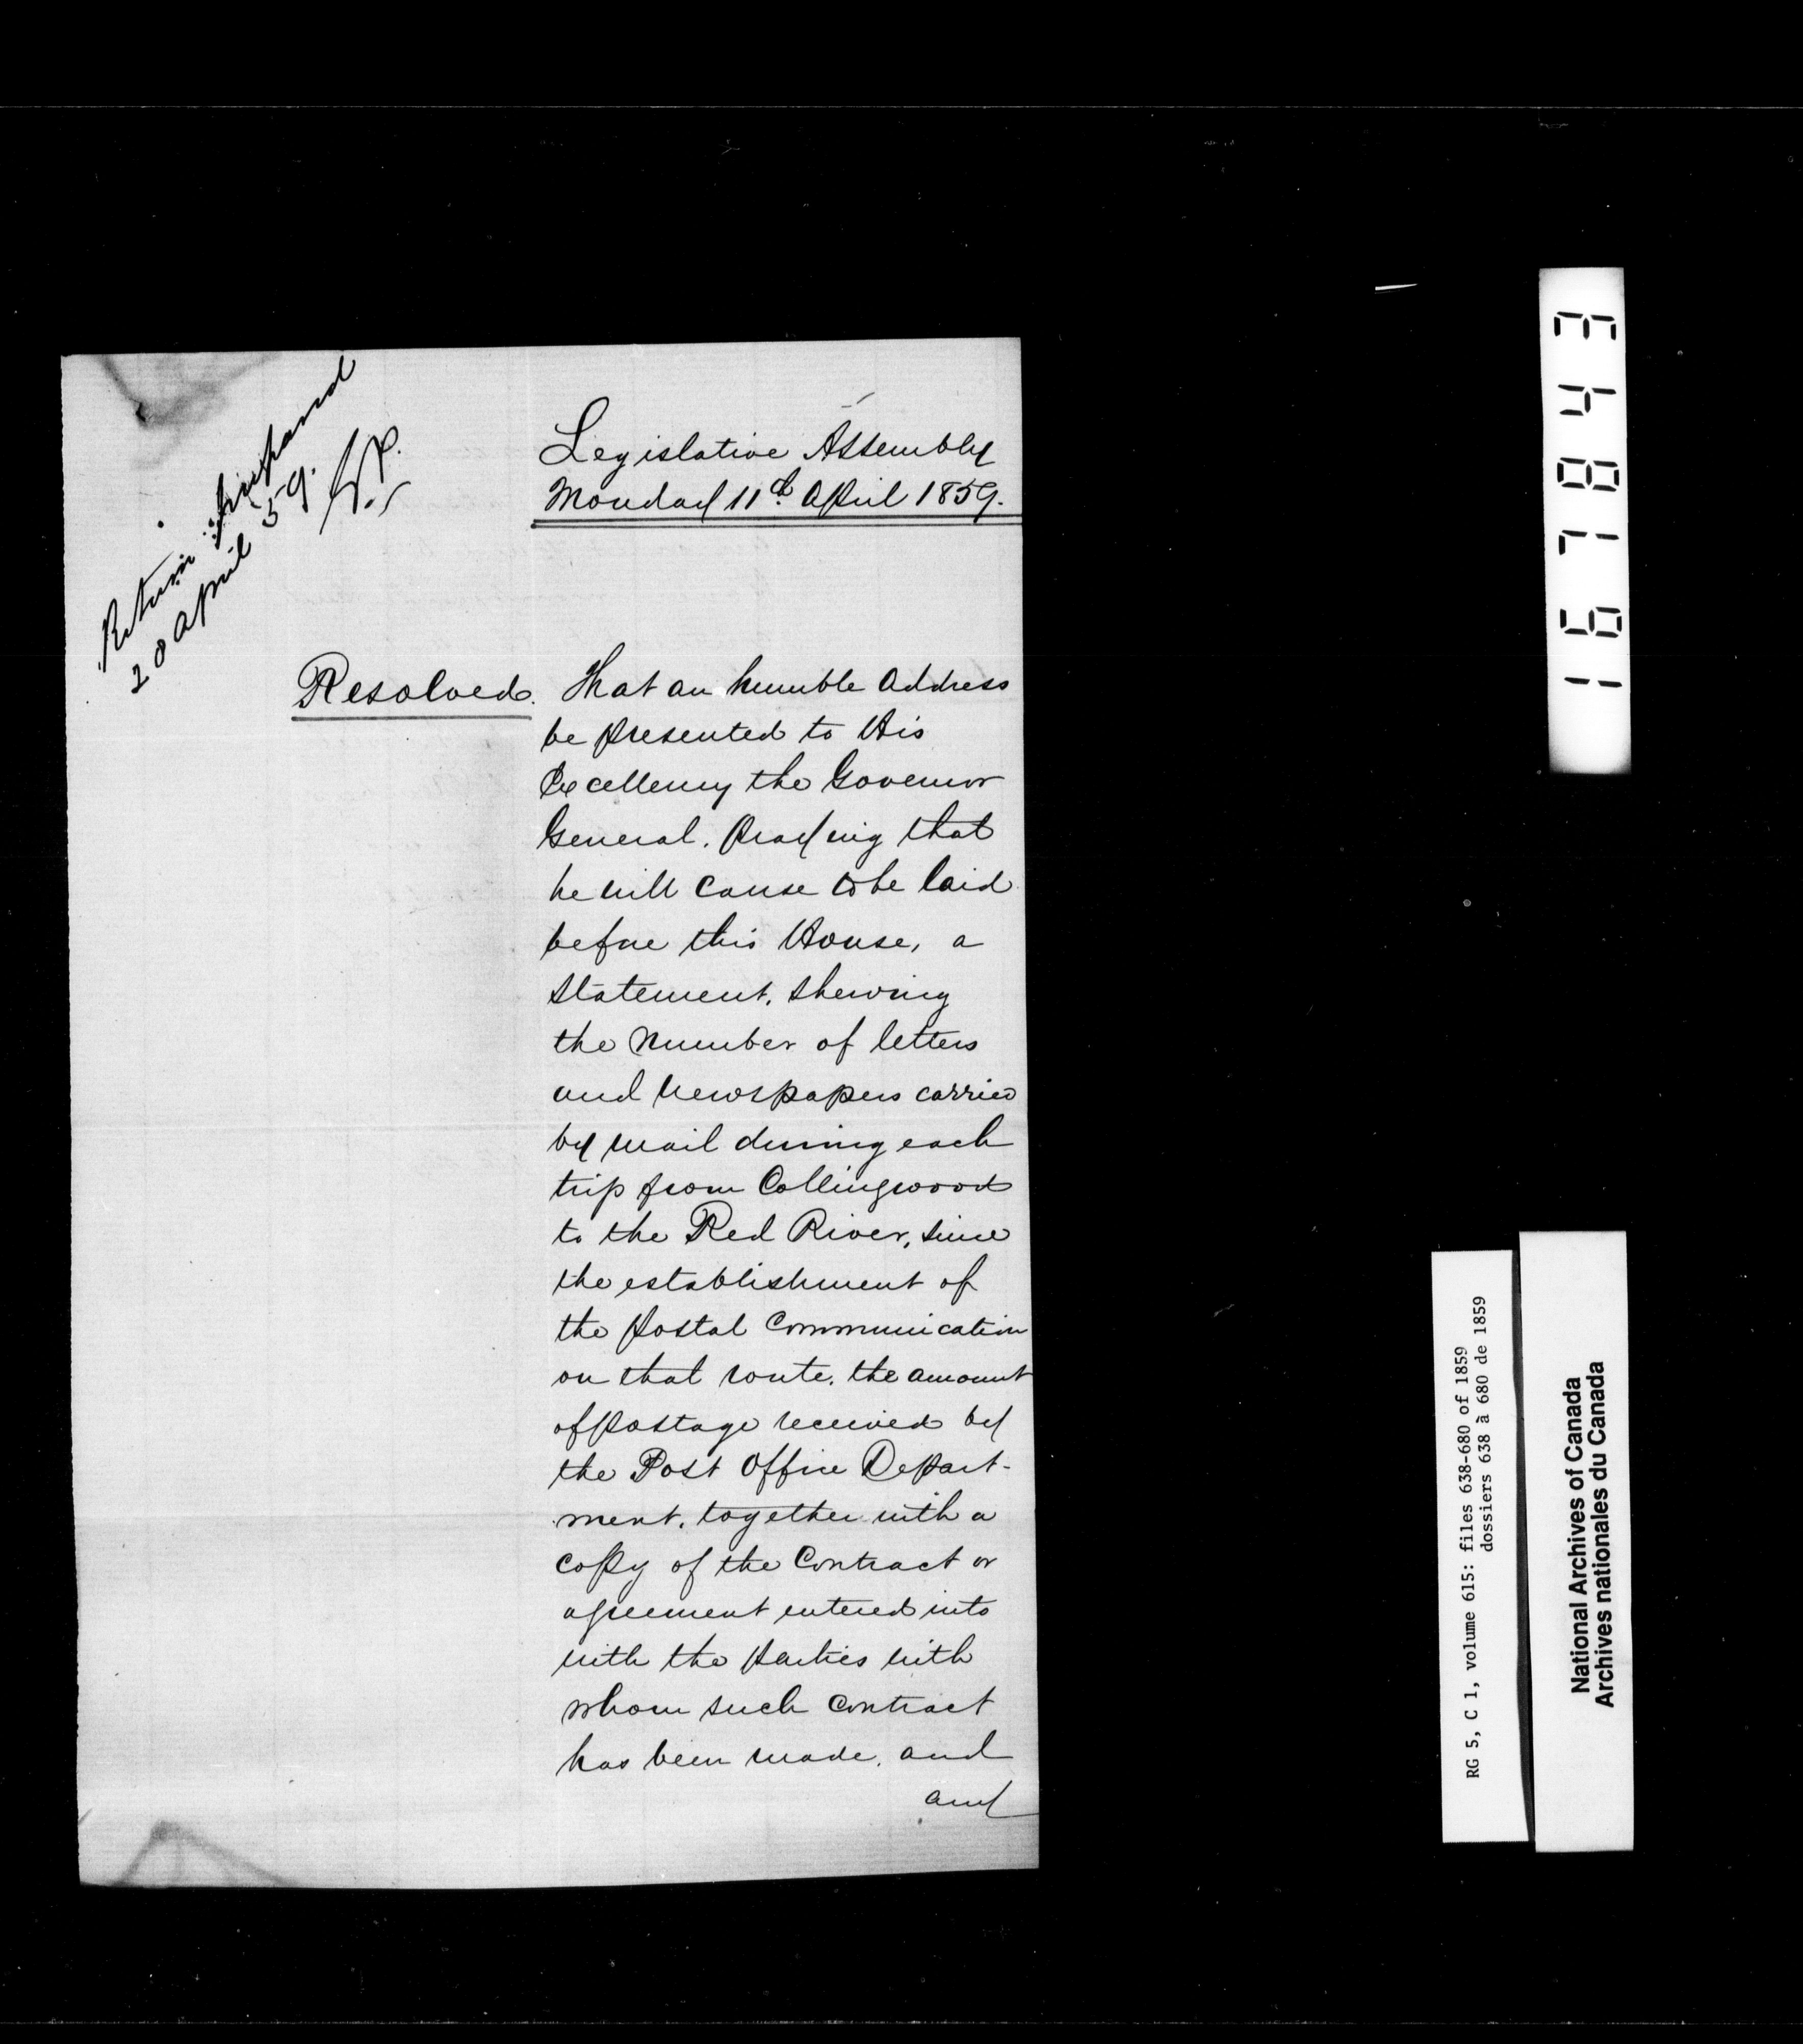 Return prepared
20 April 59.
Legislative Assembly
Monday 11th April 1859.
Resolved. That an humble Address
be presented to His
Excellency the Governor
General, praying that
he will cause to be laid
before this House, a
statement, shewing
the number of letters
and newspapers carried
by mail during each
trip from Collingwood
to the Red River, since
the establishment of
the postal communication
on that route, the amount
of postage received by
the Post Office Depart-
ment, together with a
copy of the Contract or
agreement entered into
with the parties with
whom such contract
has been made, and
and
167843
RG 5, C 1, volume 615: files 638-680 of 1859
dossiers 638 à 680 de 1859
National Archives of Canada
Archives nationales du Canada